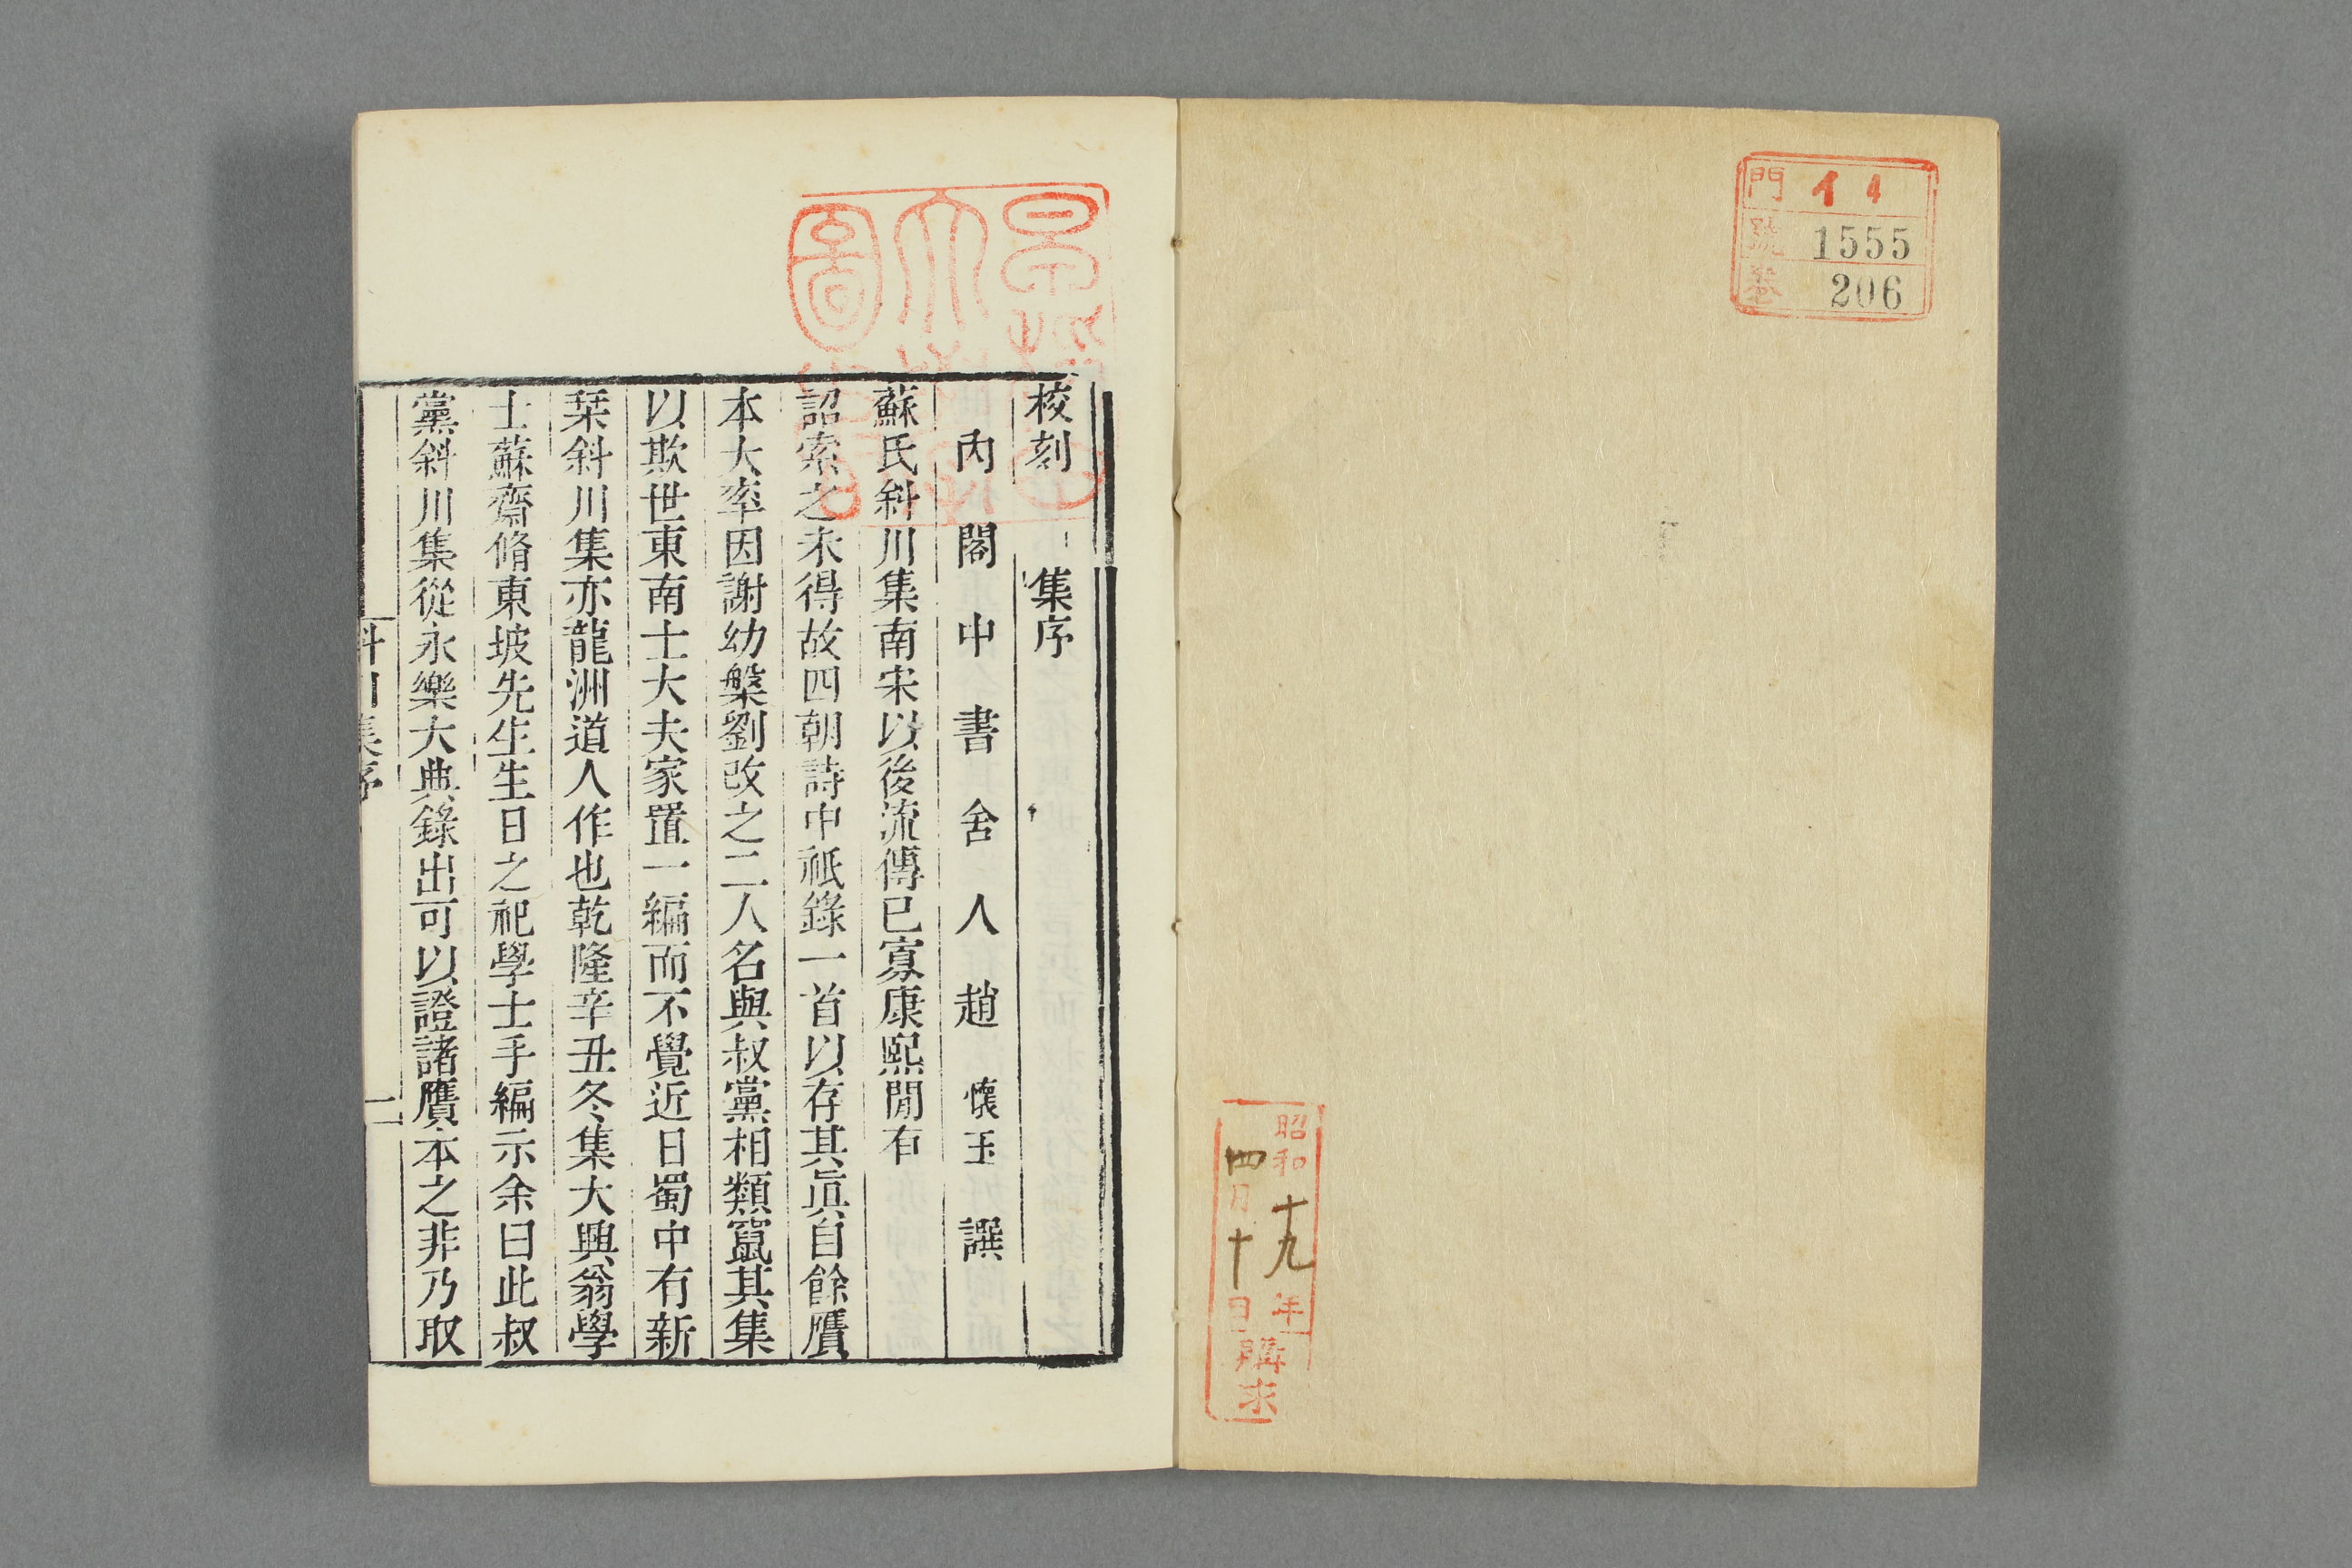 門 イ4
號 1555
卷 206
昭和十九年
四月十日
購求
校刻 集序
內閣中書舍人趙懷玉譔
蘇氏斜川集南宋以後流傳已寡康熙閒有
詔索之未得故四朝詩中祇錄一首以存其眞自餘贋
本大率因謝幼槃劉改之二人名與叔黨相類竄其集
以欺世東南士大夫家置一編而不覺近日蜀中有新
栞斜川集亦龍洲道人作也乾隆辛丑冬集大興翁學
士蘇齋脩東坡先生生日之祀學士手編示余曰此叔
黨斜川集從永樂大典錄出可以證諸贋本之非乃取
斜川集序
一